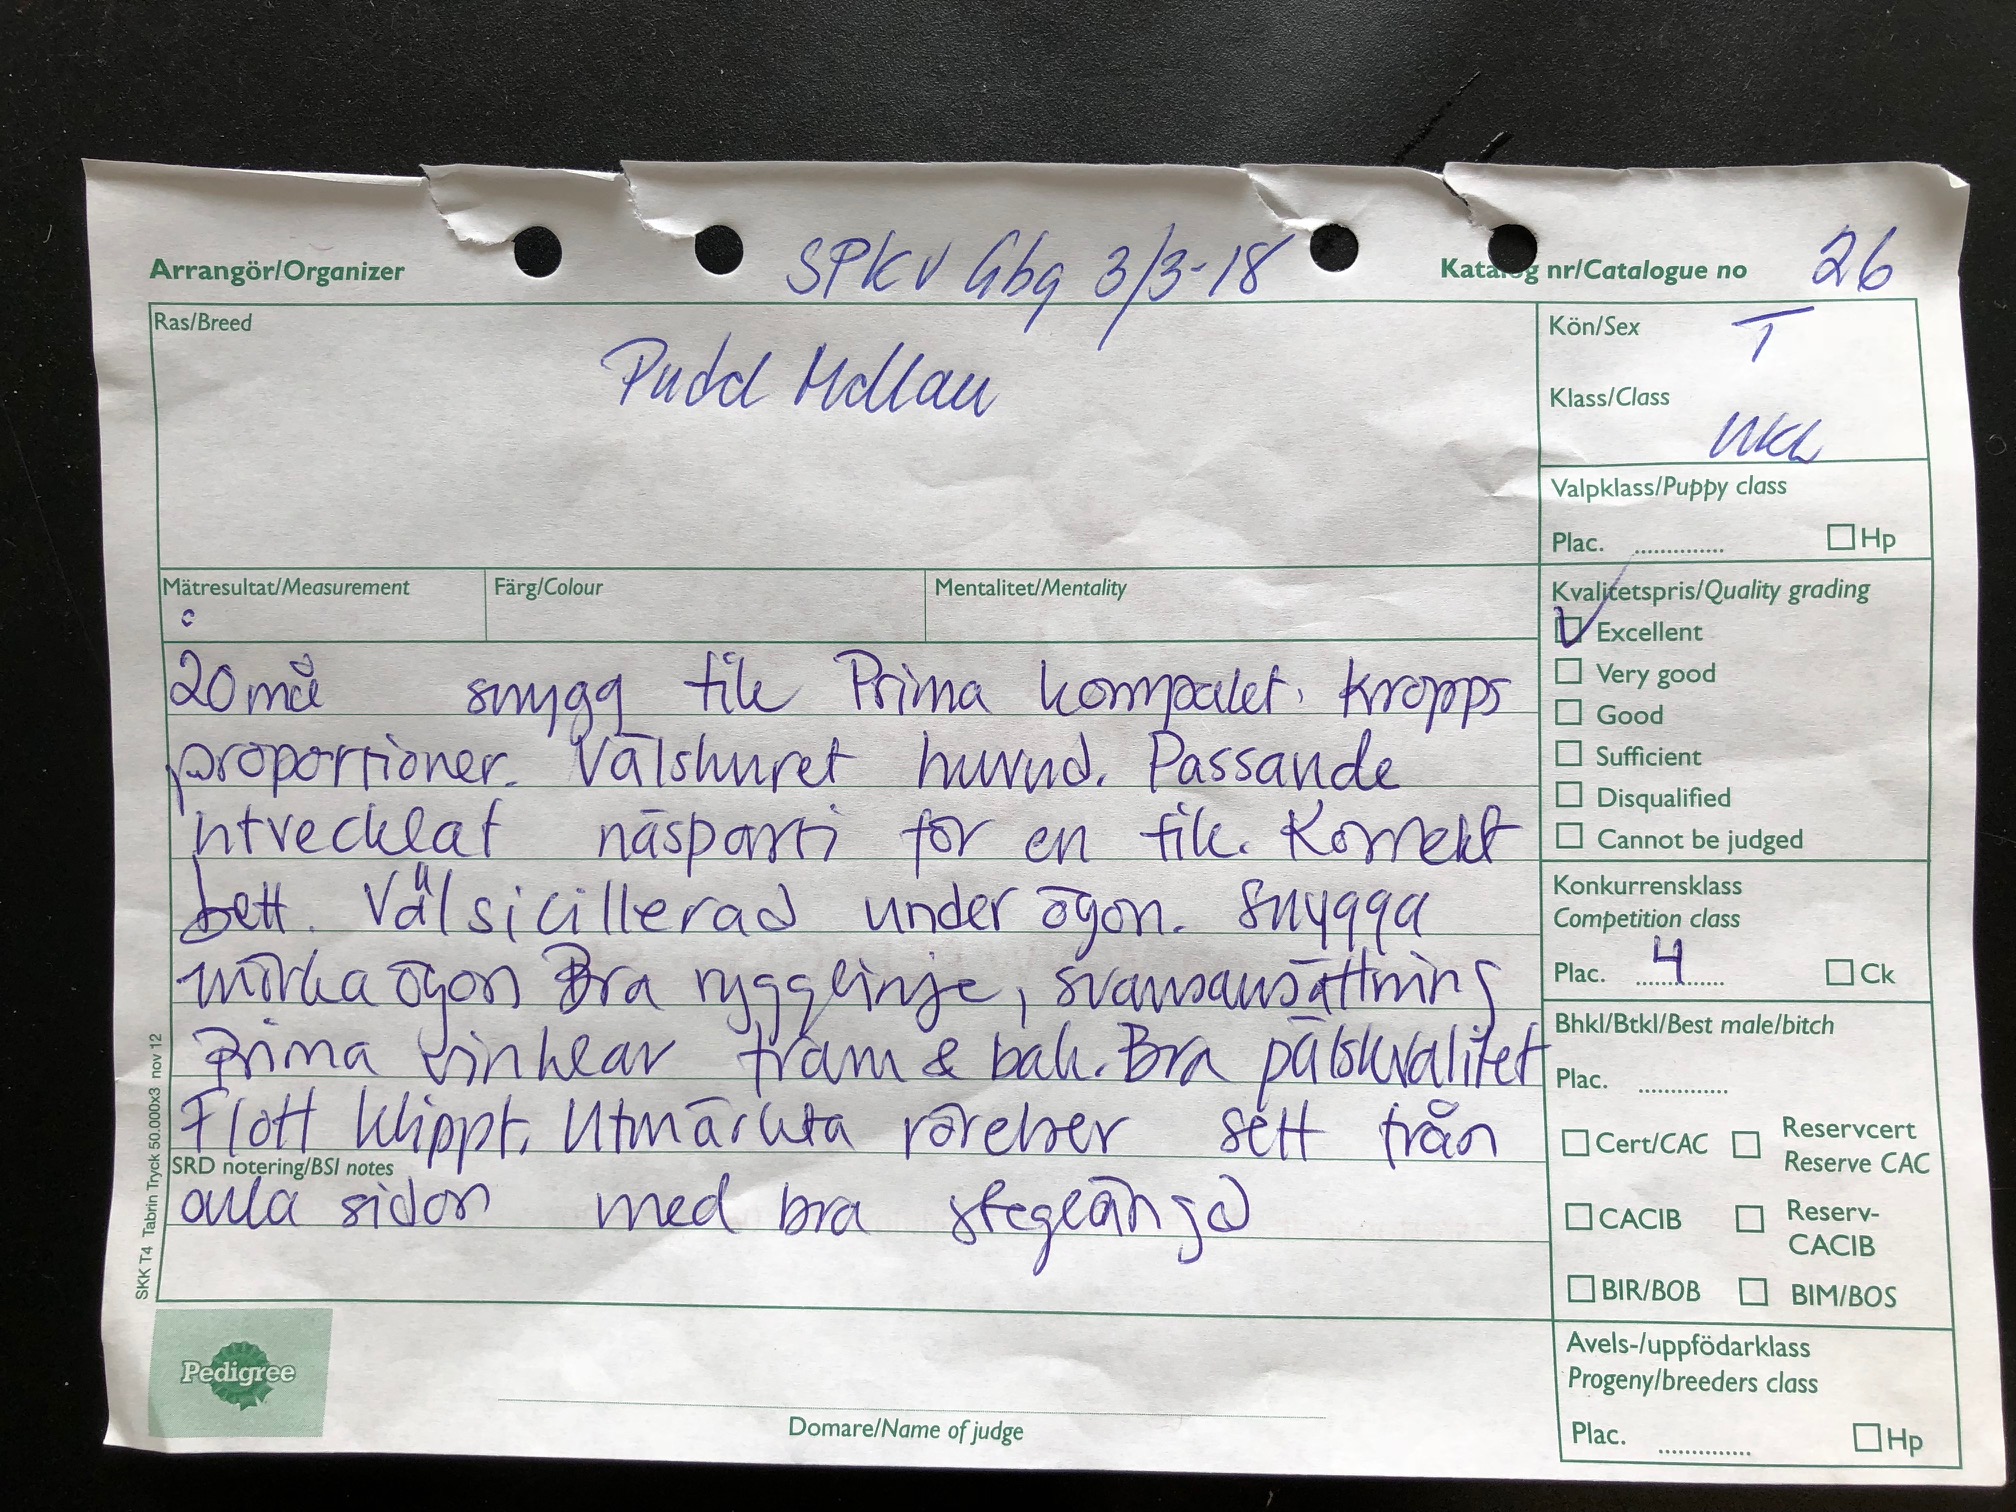 Arrangör/Organizer
SPKV Gbg 3/3-18
Katalog nr/Catalogue no 26
Ras/Breed
Pudd Mellan
Kön/Sex T
Klass/Class
UKL
Valpklass/Puppy class
Plac. .............. Hp
Mätresultat/Measurement
Färg/Colour
Mentalitet/Mentality
Kvalitetspris/Quality grading
Excellent
Very good
Good
Sufficient
Disqualified
Cannot be judged
Konkurrensklass
Competition class
Plac. 4 Ck
Bhkl/Btkl/Best male/bitch
Plac. ..............
Cert/CAC
Reservcert
Reserve CAC
CACIB
Reserv-
CACIB
BIR/BOB
BIM/BOS
Avels-/uppfödarklass
Progeny/breeders class
Plac. .............. Hp
20 må snygg tik Prima kompakt. kropps
proportioner. Välskuret huvud. Passande
utvecklat näsparti för en tik. Korrekt
bett. Välsicillerad under ögon. Snygga
mörka ögon Bra rygglinje, svansansättning
Prima vinklar fram & bak. Bra pälskvalitet
Flott klippt. Utmärkta rörelser sett från
SRD notering/BSI notes
alla sidor med bra steglängd
SKK T4 Tabrin Tryck 50.000x3 nov 12
Pedigree
Domare/Name of judge